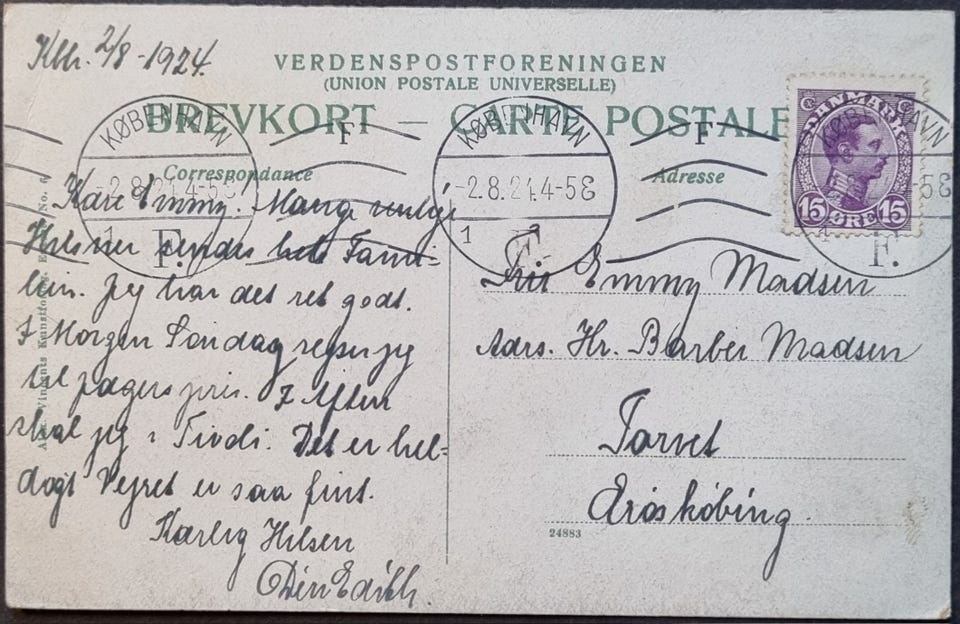 Kbh. 2/8-1924.
VERDENSPOSTFORENINGEN
(UNION POSTALE UNIVERSELLE)
BREVKORT — CARTE POSTALE
DANMARK
15 ØRE 15
KØBENHAVN
-2.8.24.4-5E
1 F.
F
KØBENHAVN
-2.8.24.4-5E
1 F.
F
KØBENHAVN
5E
1 F.
Correspondance
Adresse
Kære Emmy! Mange venlige
Hilsner sendes hele Fami-
lien. Jeg har det ret godt.
I Morgen Søndag rejser jeg
til
I Aften
skal jeg i Tivoli. Det er hel-
digt Vejret er saa fint.
Kærlig Hilsen
Din Edith.
Frk. Emmy Madsen
Adrs. Hr. Barber Madsen
Torvet
Ærøskøbing.
24883